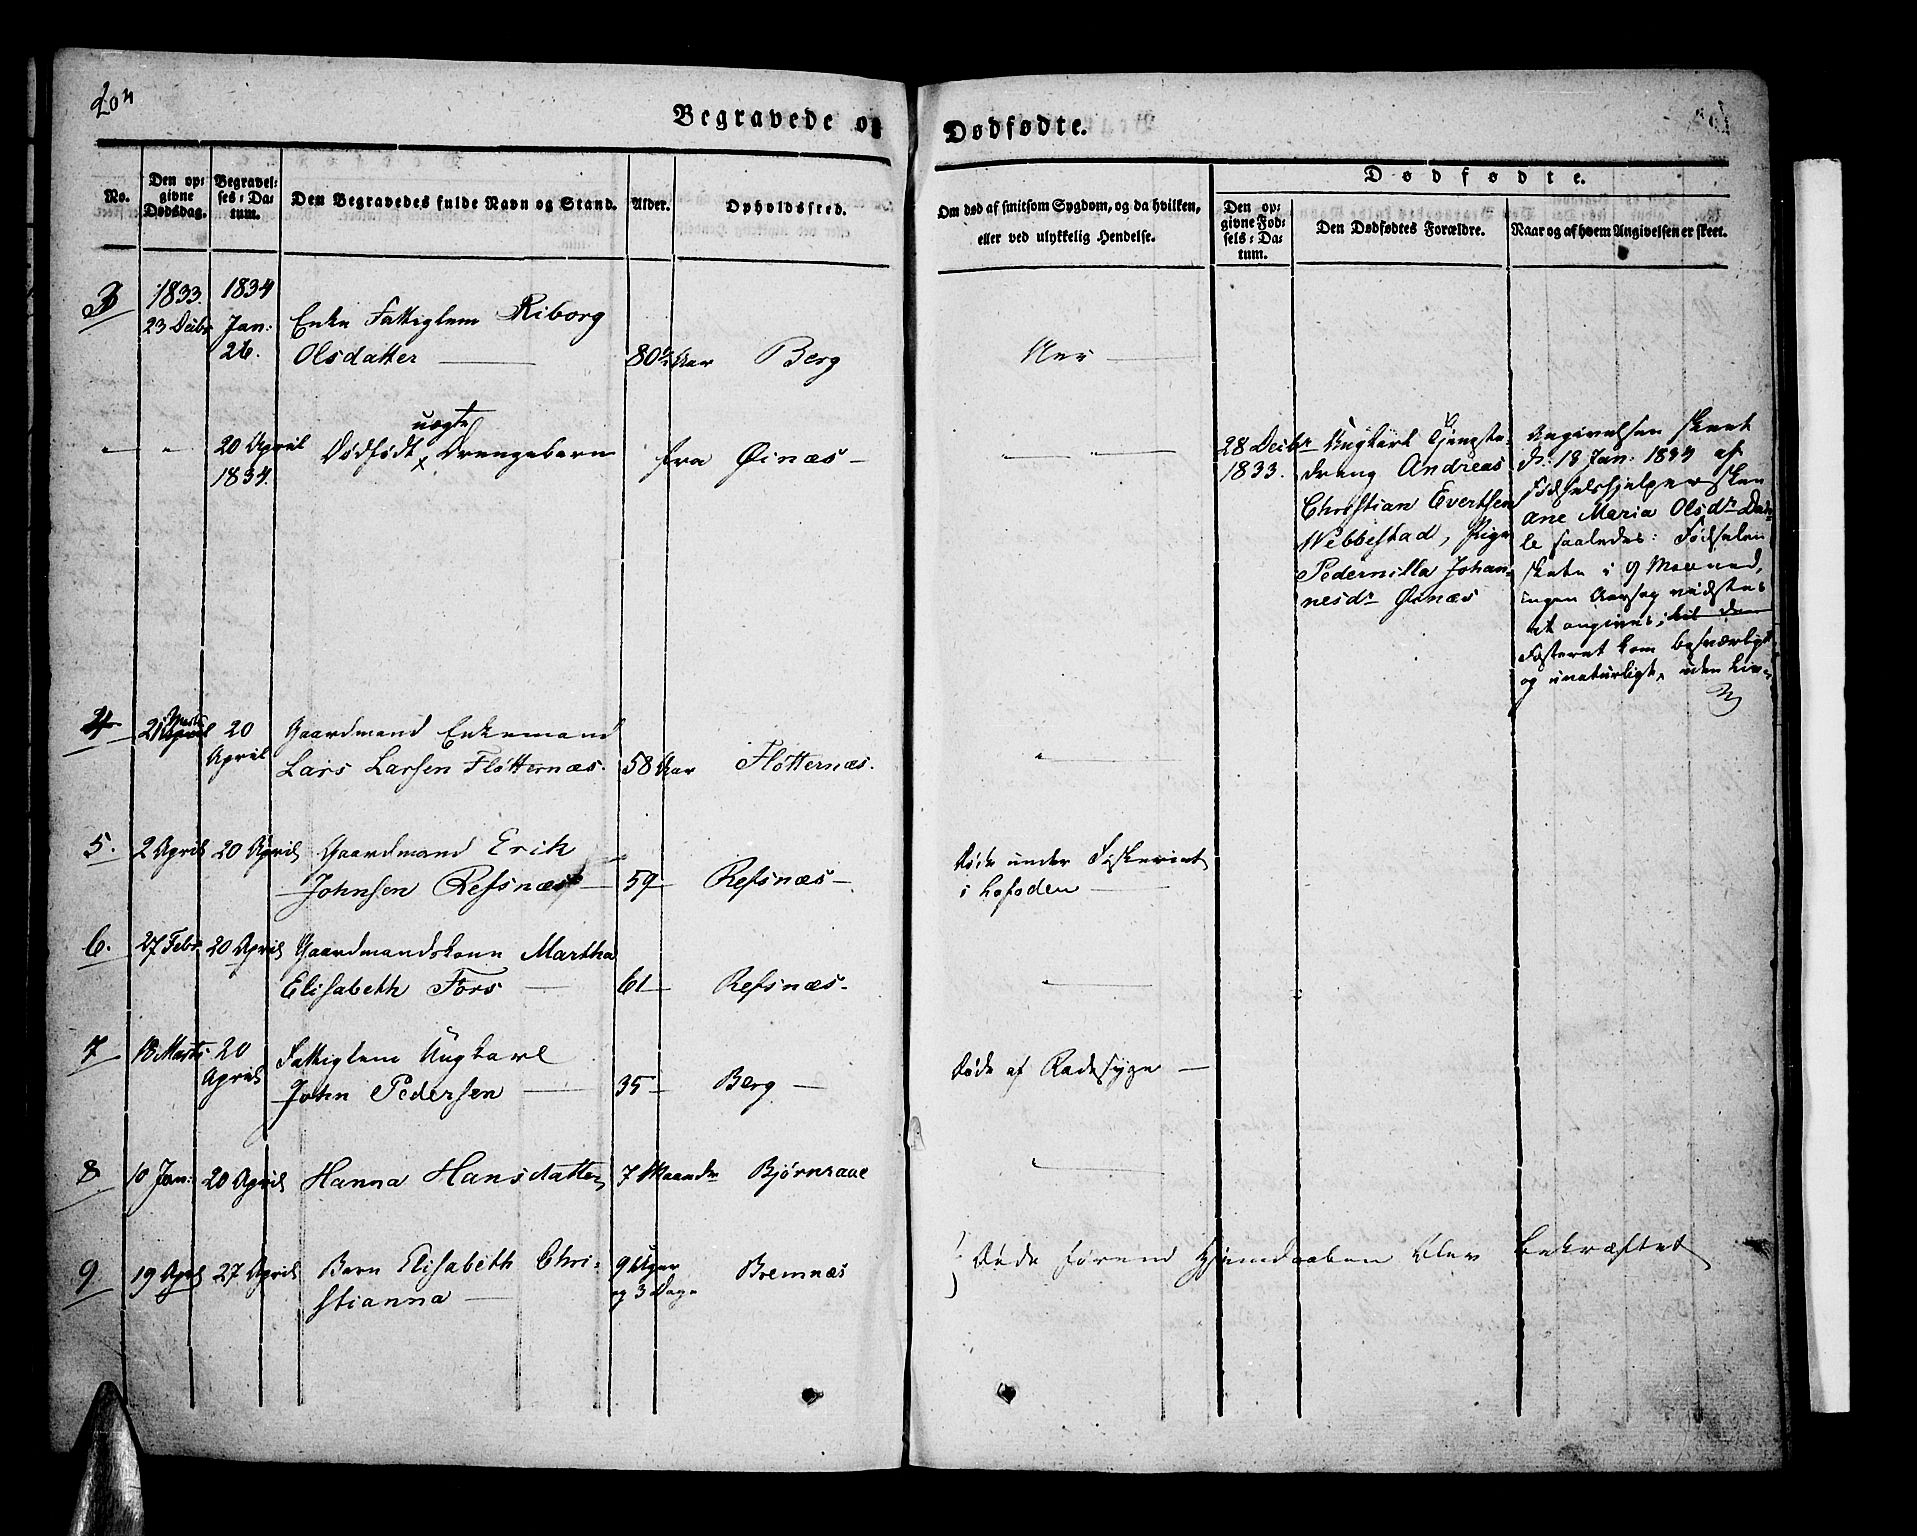 204
Begravede og
Dødfødte.
No.
Den op-
givne
Dødsdag.
Begravel-
ses-Da-
tum.
Den Begravedes fulde Navn og Stand.
Alder.
Opholdssted.
Om død af smitsom Sygdom, og da hvilken,
eller ved ulykkelig Hendelse.
Dødfødte.
Den op-
givne Fød-
sels-Da-
tum.
Den Dødfødtes Forældre.
Naar og af hvem Angivelsen er skeet.
3
1833.
23 Decbr
1834
Jan:
26.
Enke Fattiglem Riborg
Olsdatter
80½ Aar
Berg
20 April
1834.
uægte
Dødfødt Drengebarn
fra Øinæs
28 Decbr
1833.
Ungkarl Tjeneste-
dreng Andreas
Christian Evertsen
Webbestad, Pige
Pedernilla Johan-
nesdr Øinæs
Angivelsen skeet
d: 18 Jan: 1834 af
Fødselshjelpersken
Ane Maria Olsdr
saaledes: Fødselen
skete i 9 Maaned,
ingen Aarsag vidstes
at angives; til den
Fosteret kom besværligt
og unaturligt, uden Liv
4
21 April
Marts
20
April
Gaardmand Enkemand
Lars Larsen Fløtternæs.
58 Aar
Fløtternæs.
5.
2 April
20 April
Gaardmand Erik
Johnsen Refsnæs
59
Refsnæs
Døde under Fiskeriet
i Lofoden
6.
27 Febr
20 April
Gaardmandskone Martha
Elisabeth Fors
61
Refsnæs
7
18 Marts
20
April
Fattiglem Ungkarl
John Pedersen
35
Berg
Døde af Radesyge
8
10 Jan:
20 April
Hanna Hansdatter
7 Maander
Bjørnraae
9.
19 April
27 April
Barn Elisabeth Chri-
stianna
9 Uger
og 3 Dage
Bremnæs
Døde førend Hjemdaaben blev bekræftet